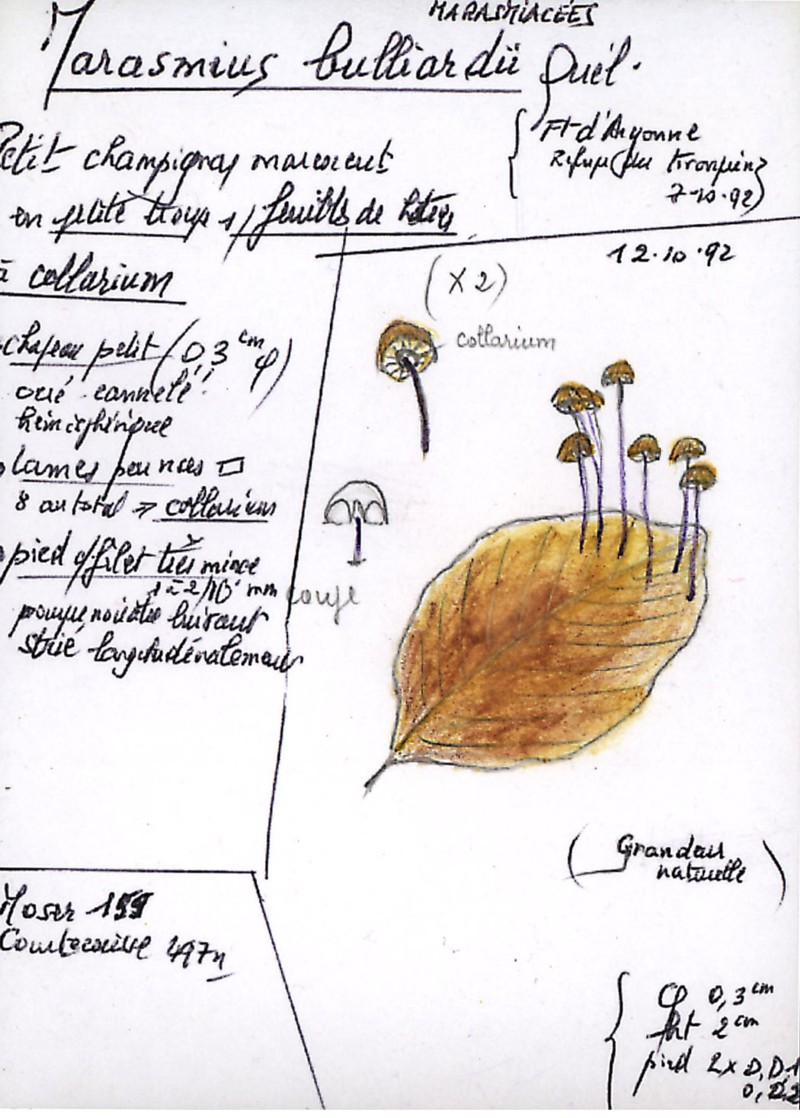 MARASMIACÉES
Marasmius bulliardii Quél.
Ft d'Argonne
Refuge du
7-10-92
Petit champignon marcescent
en petite troupe s/ feuilles de hêtres
à collarium
12.10.92
(x2)
collarium
chapeau petit (0,3 cm φ)
ocré cannelé !!
hémisphérique
lames peu nces
8 au total → collarium
pied filet très mince
1 à 2/10° mm
coupe
noirâtre luisant
strié longitudinalement
(Grandeur
naturelle)
Moser 199
Courtecuisse 497
φ 0,3 cm
ht 2 cm
pied 2 x 0,01
0,02